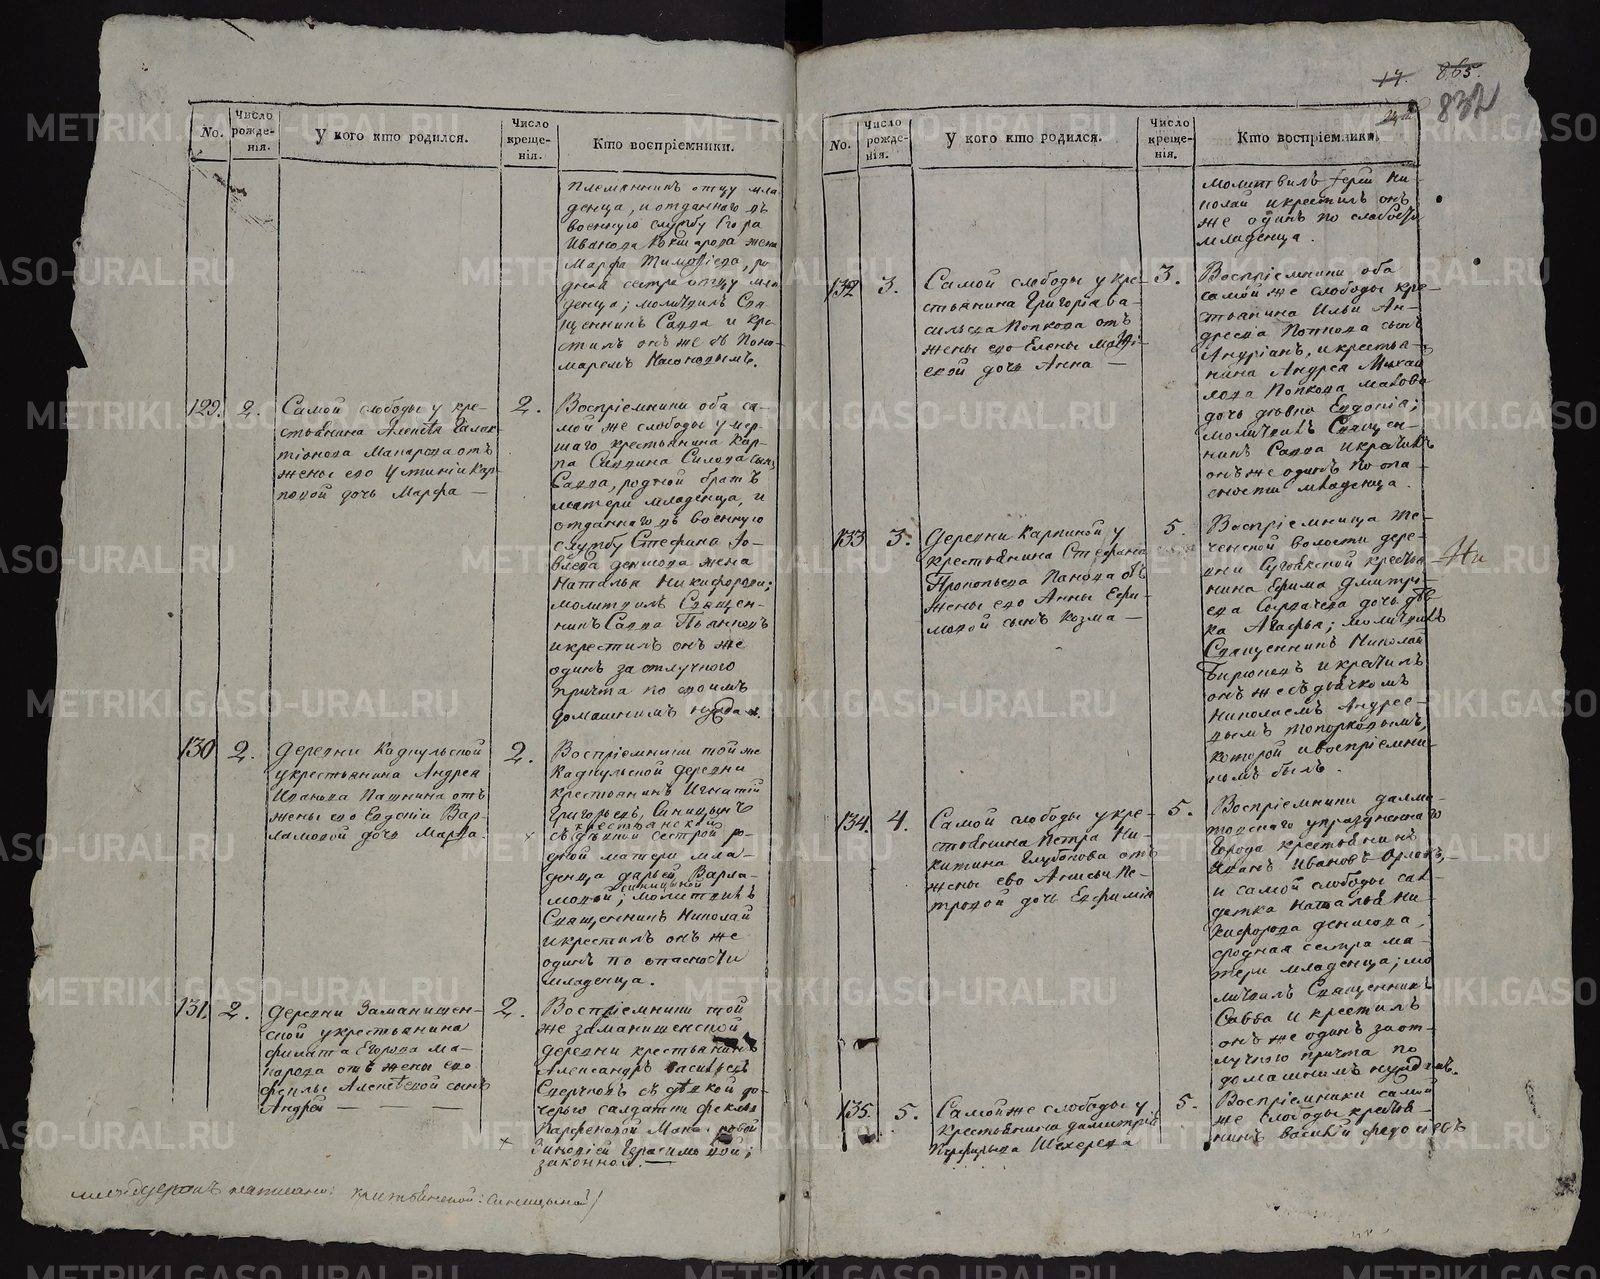 17. 865.
832
No.
Число рожденія.
У кого кто родился.
Число крещенія.
Кто воспріемники.
племянникъ отцу мла-
денца, и отданнаго въ
военную службу Егора
Иванова Кокшарова жена
Марфа Тимофеева, ро-
дная сестра отцу мла-
денца; молитвилъ Свя-
щенникъ Савва и кре-
стилъ онъ же съ Поно-
маремъ
129. 2.
Самой слободы у кре-
стьянина Алексѣя Галак-
тіонова Макарова отъ
жены его Устиніи Кар-
повой дочь Марфа —
2.
Воспріемники оба са-
мой же слободы умер-
шаго крестьянина Кар-
па Саввина Силова сынъ
Савва, родной братъ
матери младенца, и
отданнаго въ военную
службу Стефана Іо-
влева Денисова жена
Наталья Никифорова;
молитвилъ Священ-
никъ Савва Пьянковъ
и крестилъ онъ же
одинъ за отлучного
причта по своимъ
домашнимъ нуждамъ.
130 2.
Деревни Кадкульской
у крестьянина Андрея
Иванова Пашнина отъ
жены его Евдокіи Вар-
ламовой дочь Марфа.
2.
Воспріемники той же
Кадкульской деревни
крестьянинъ Игнатій
Григорьевъ Синицынъ
крестьянской
съ дѣвкой сестрой ро-
дной матери мла-
денца Дарьей Варла-
синицыной
мовой; молитвилъ
Священникъ Николай
и крестилъ онъ же
одинъ по опасности
младенца.
131. 2.
Деревни Заманишен-
ской у крестьянина
Филата Егорова Ма-
карова отъ жены его
Алексѣевой сынъ
Андрей — — —
2.
Воспріемники той
же заманишенской
деревни крестьянинъ
Александръ Васильевъ
Сверчковъ съ дѣвкой до-
черью салдатки Феклы
Парфеновой
Зиновіей Герасимовой;
законной. —
написано: крестьянской: синицыной)
No.
Число рожденія.
У кого кто родился.
Число крещенія.
Кто воспріемники.
молитвилъ Іерей Ни-
колай и крестилъ онъ
же одинъ по слабости
младенца.
132 3.
Самой слободы у кре-
стьянина Григорія Ва-
сильева Попкова отъ
жены его Елены Матѳі-
евой дочь Анна —
3.
Воспріемники оба
самой же слободы кре-
стьянина Ильи Ан-
дреева Попкова сынъ
Андріанъ, и крестья-
нина Андрея Михай-
лова Попкова
дочь дѣвка Евдокія;
молитвилъ Священ-
никъ Савва и крестилъ
онъ же одинъ по опа-
сности младенца.
133 3.
Деревни Карпиной у
крестьянина Стефана
Прокопьева Панова отъ
жены его Анны Ефи-
мовой сынъ Козма —
5.
Воспріемница Те-
ченской волости дере-
вни Сугоякской крестья-
нина Ефима Дмитрі-
ева дочь дѣв-
ка Агафья; молитвилъ
Священникъ Николай
Бирюковъ и крестилъ
онъ же съ дьячкомъ
Николаемъ Андрее-
вымъ Топорковымъ,
которой и воспріемни-
комъ былъ.
134. 4.
Самой слободы у кре-
стьянина Петра Ни-
китина Глубокова отъ
жены ево Анисьи Пе-
тровой дочь Евфимія
5.
Воспріемники далма-
товскаго упраздненнаго
города крестьянинъ
Иванъ Ивановъ Орловъ,
и самой слободы сал-
датка Наталья Ни-
кифорова Денисова,
сродная сестра ма-
тери младенца; мо-
литвилъ Священникъ
Савва и крестилъ
онъ же одинъ за от-
лучкою причта по
домашнимъ нуждамъ.
135. 5.
Самой же слободы у
крестьянина Димитрія
Перфильева
5.
Воспріемники самой
же слободы крестья-
нинъ Василій Федосеевъ
METRIKI.GASO-URAL.RU